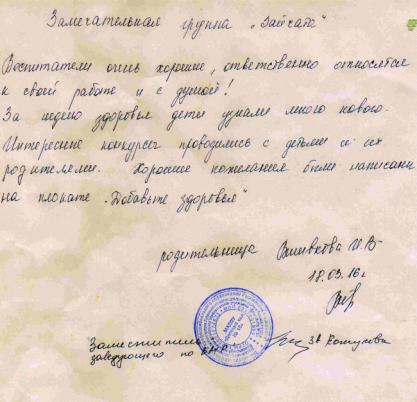 Замечательная группа „Зайчата"
Воспитатели очень хорошие, ответственно относятся
к своей работе и с душой!
За неделю здоровья дети узнали много нового.
Интересные конкурсы проводились с детьми и их
родителями. Хорошие пожелания были написаны
на плакате „Добавьте здоровья"
родительница И.В
18.03.16г
Заместитель
заведующего по